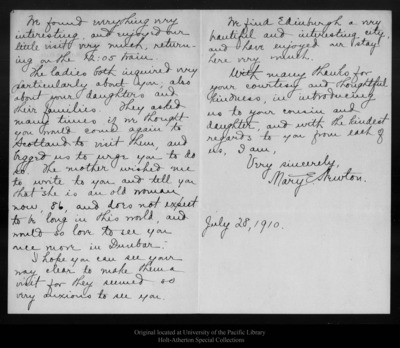 We found everything very
interesting, and enjoyed our
little visit very much, return-
ing on the 12:05 train.
The ladies both inquired very
particularly about you, also
about your daughters and
their families. They asked
many times if we thought
you would come again to
Scotland to visit them, and
begged us to urge you to do
so. The mother wished me
to write to you and tell you
that she is an old woman
now, 86, and does not expect
to be long in this world, and
would so love to see you
once more in Dunbar.
I hope you can see your
way clear to make them a
visit for they seemed so
very anxious to see you.
We find Edinburgh a very
beautiful and interesting city,
and have enjoyed our stay
here very much.
With many thanks for
your courtesy and thoughtful
kindness, in introducing
us to your cousin and
daughter, and with the kindest
regards to you from each of
us, I am,
Very sincerely,
Mary E. Newton.
July 28, 1910.
Original located at University of the Pacific Library
Holt-Atherton Special Collections